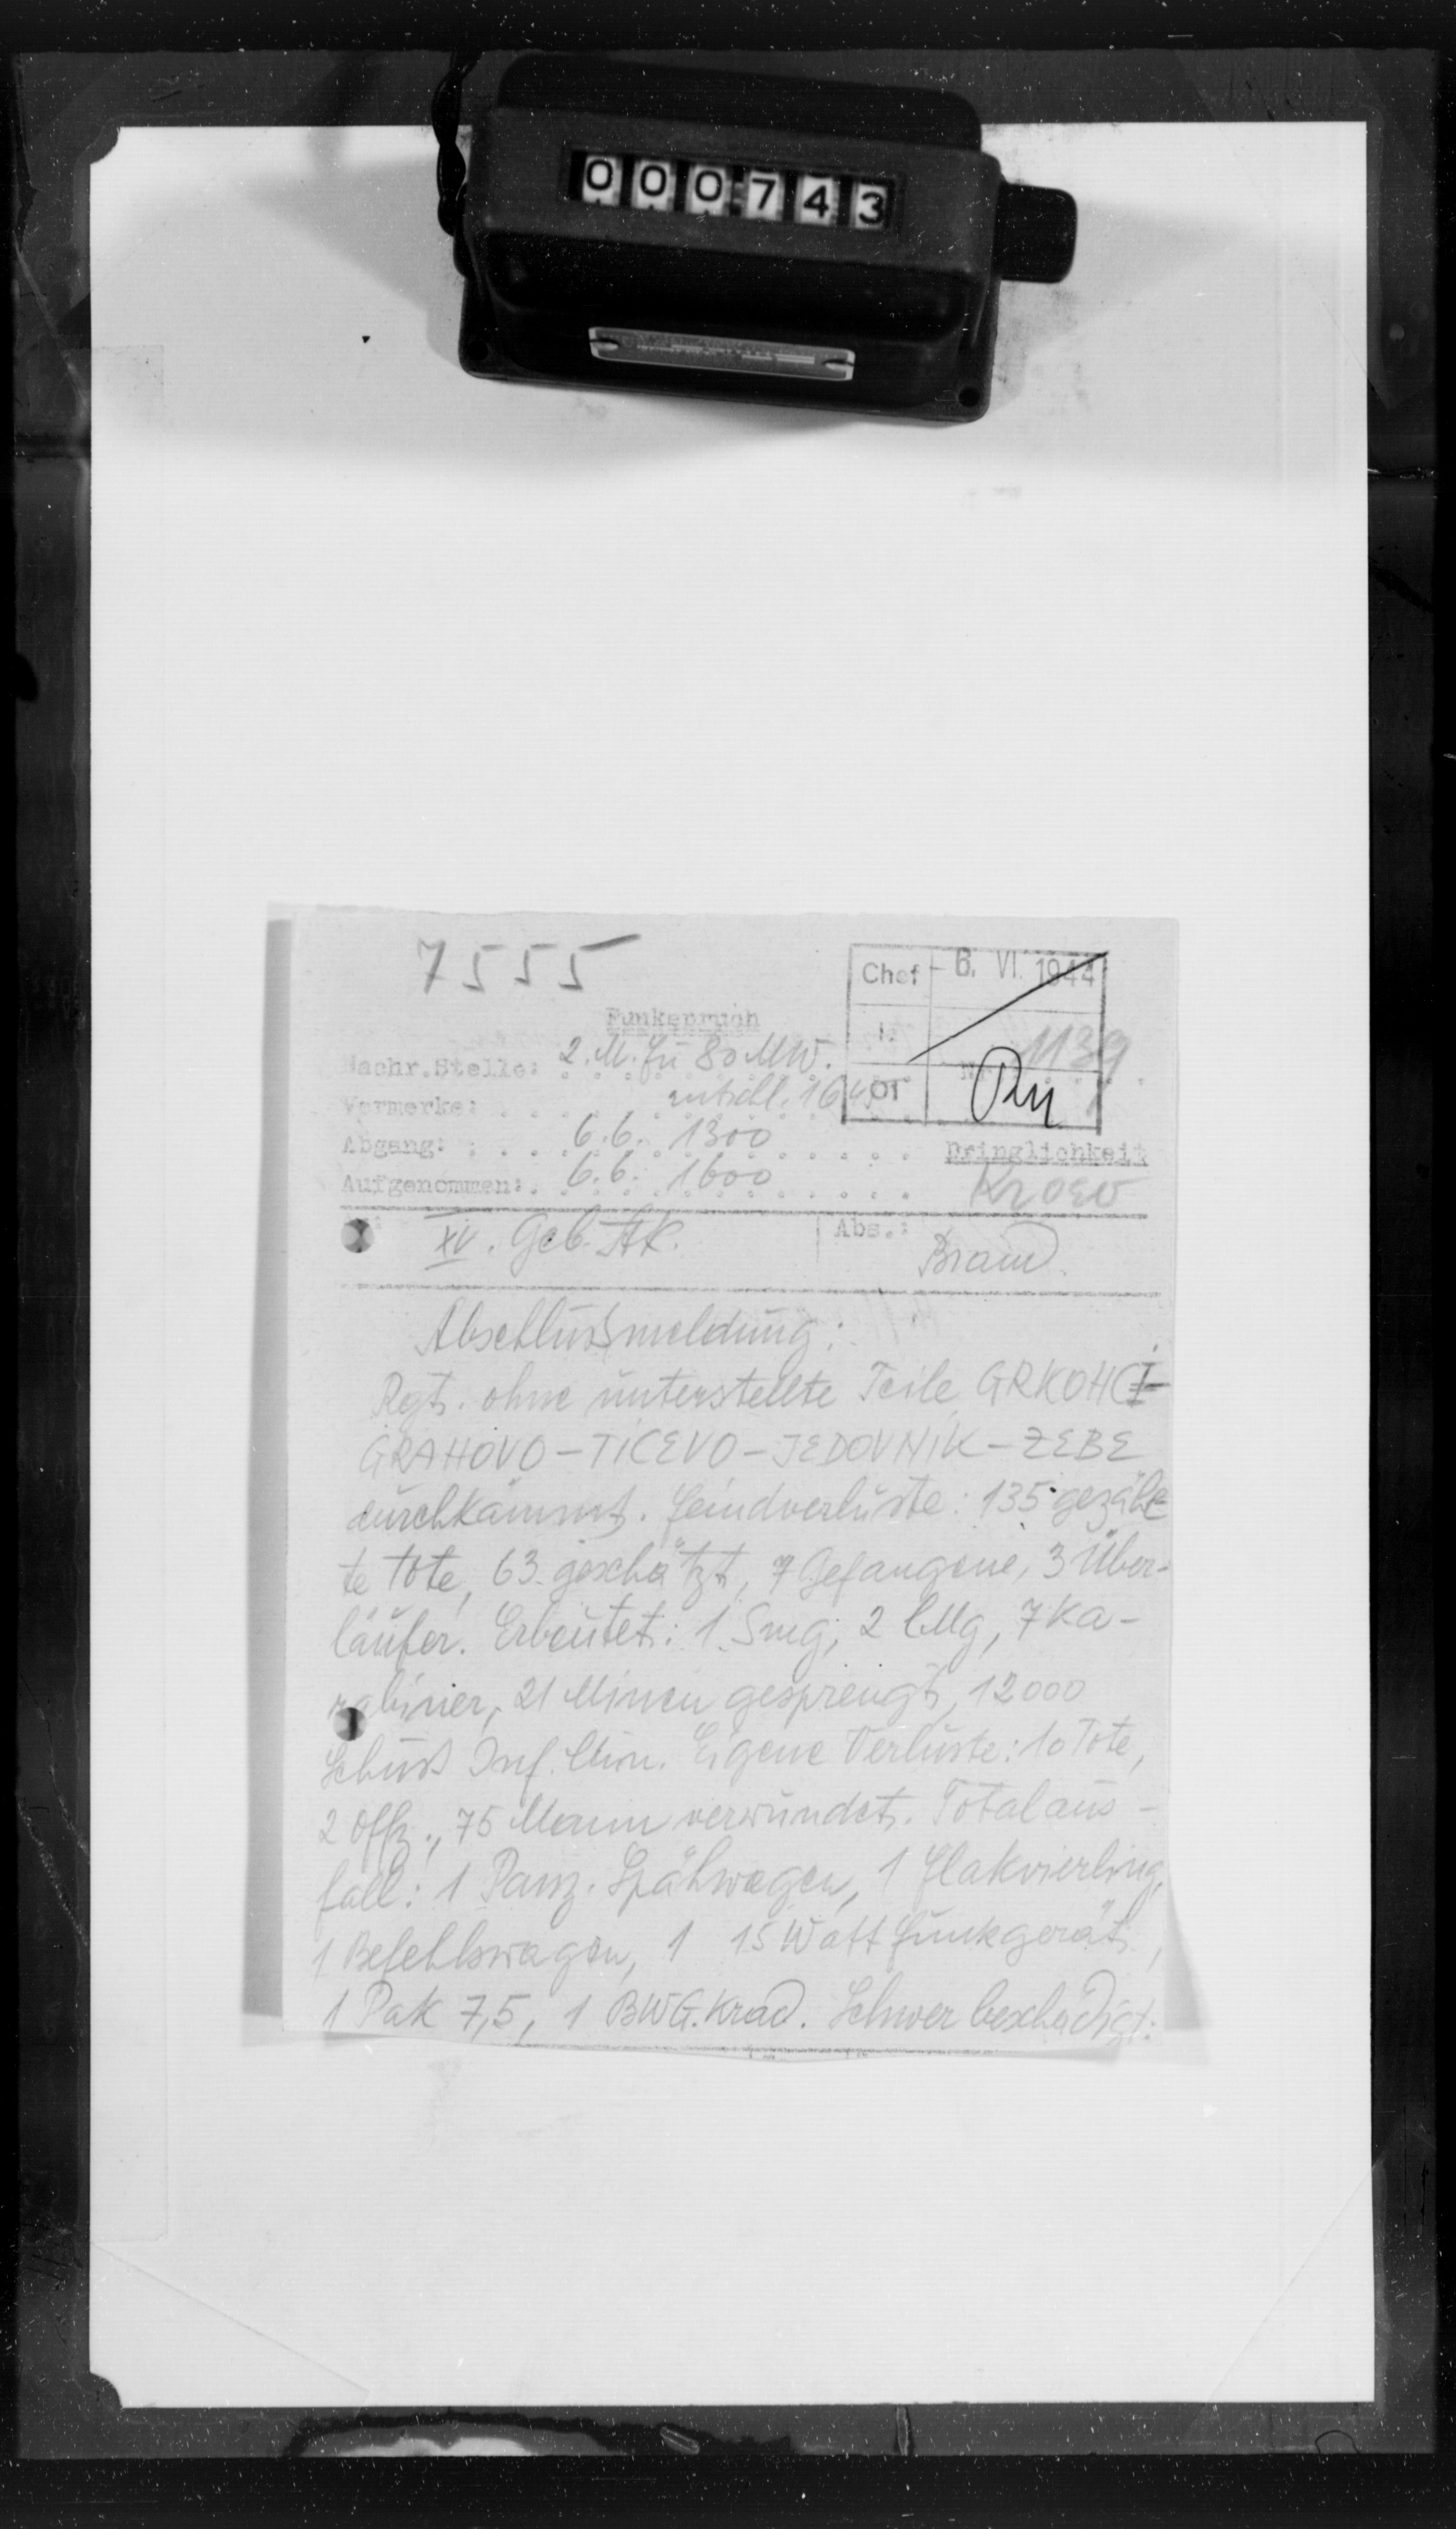 000743
7555
Chef - 6. VI. 1944
Funkspruch
I.
1139
Nachr.Stelle: 2. M. Fu 80 MW.
Vermerke: entschl. 1645
OI
Abgang: 6.6. 1300
Dringlichkeit
Aufgenommen: 6.6. 1600
KR
XV. Geb. AK.
Abs.: Brand.
Abschlußmeldung:
Rgt. ohne unterstellte Teile GRKOHCI-
GRAHOVO - TICEVO - JEDOVNIK - ZEBE
durchkämmt. Feindverluste: 135 gezähl-
te Tote, 63 geschätzt, 7 Gefangene, 3 Über-
läufer. Erbeutet: 1 Smg, 2 lMg, 7 Ka-
rabiner, 21 Minen gesprengt, 12000
Schuß Inf. Mun. Eigene Verluste: 10 Tote,
2 Offz., 75 Mann verwundet. Totalaus-
fall: 1 Panz. Spähwagen, 1 Flakvierling,
1 Befehlswagen, 1 15 Watt Funkgerät,
1 Pak 7,5, 1 BWG. Krad. Schwer beschädigt: